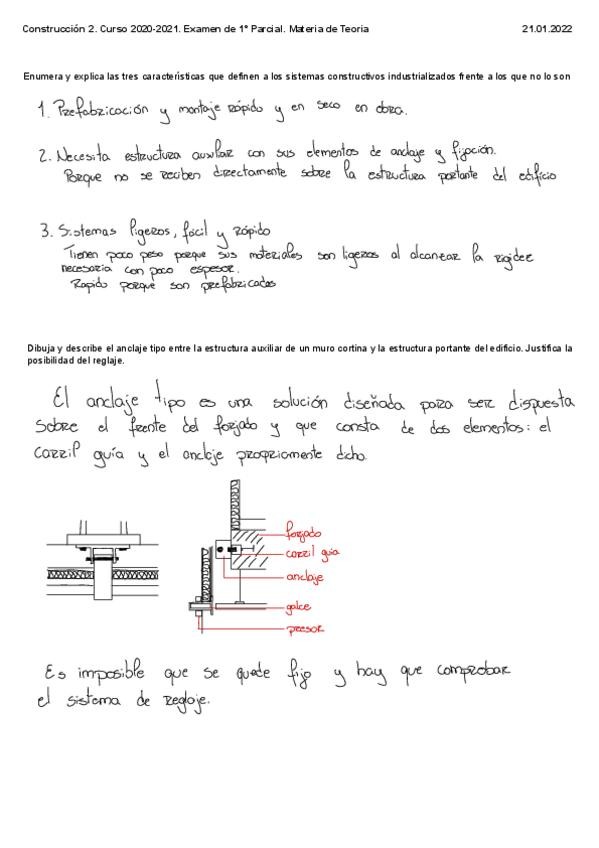 Construcción 2. Curso 2020-2021. Examen de 1º Parcial. Materia de Teoría 21.01.2022
Enumera y explica las tres características que definen a los sistemas constructivos industrializados frente a los que no lo son
1. Prefabricación y montaje rápido y en seco en obra.
2. Necesita estructura auxiliar con sus elementos de anclaje y fijación.
Porque no se reciben directamente sobre la estructura portante del edificio
3. Sistemas ligeros, fácil y rápido
Tienen poco peso porque sus materiales son ligeros al alcanzar la rigidez
necesaria con poco espesor.
Rapido porque son prefabricados
Dibuja y describe el anclaje tipo entre la estructura auxiliar de un muro cortina y la estructura portante del edificio. Justifica la
posibilidad del reglaje.
El anclaje tipo es una solución diseñada para ser dispuesta
sobre el frente del forjado y que consta de dos elementos: el
carril guía y el anclaje propriamente dicho.
forjado
carril guia
anclaje
galce
presor
Es imposible que se quede fijo y hay que comprobar
el sistema de reglaje.